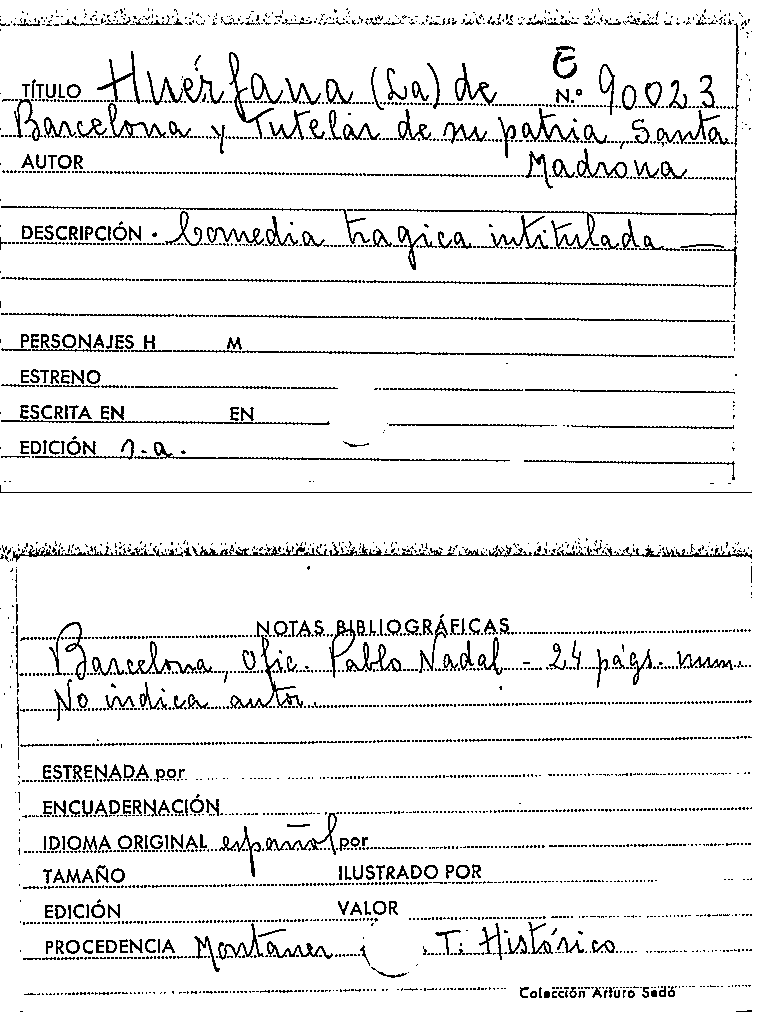 E
TÍTULO Huérfana (La) de N.º 90023
Barcelona y Tutelar de mi patria, Santa
AUTOR Madrona
DESCRIPCIÓN · Comedia trágica intitulada —
PERSONAJES H M
ESTRENO
ESCRITA EN EN
EDICIÓN s.a.
NOTAS BIBLIOGRÁFICAS
Barcelona, Ofic. Pablo Nadal - 24 págs. num.
No indica autor.
ESTRENADA por
ENCUADERNACIÓN
IDIOMA ORIGINAL español por
TAMAÑO ILUSTRADO POR
EDICIÓN VALOR
PROCEDENCIA Montaner T. Histórico
Colección Arturo Sedó